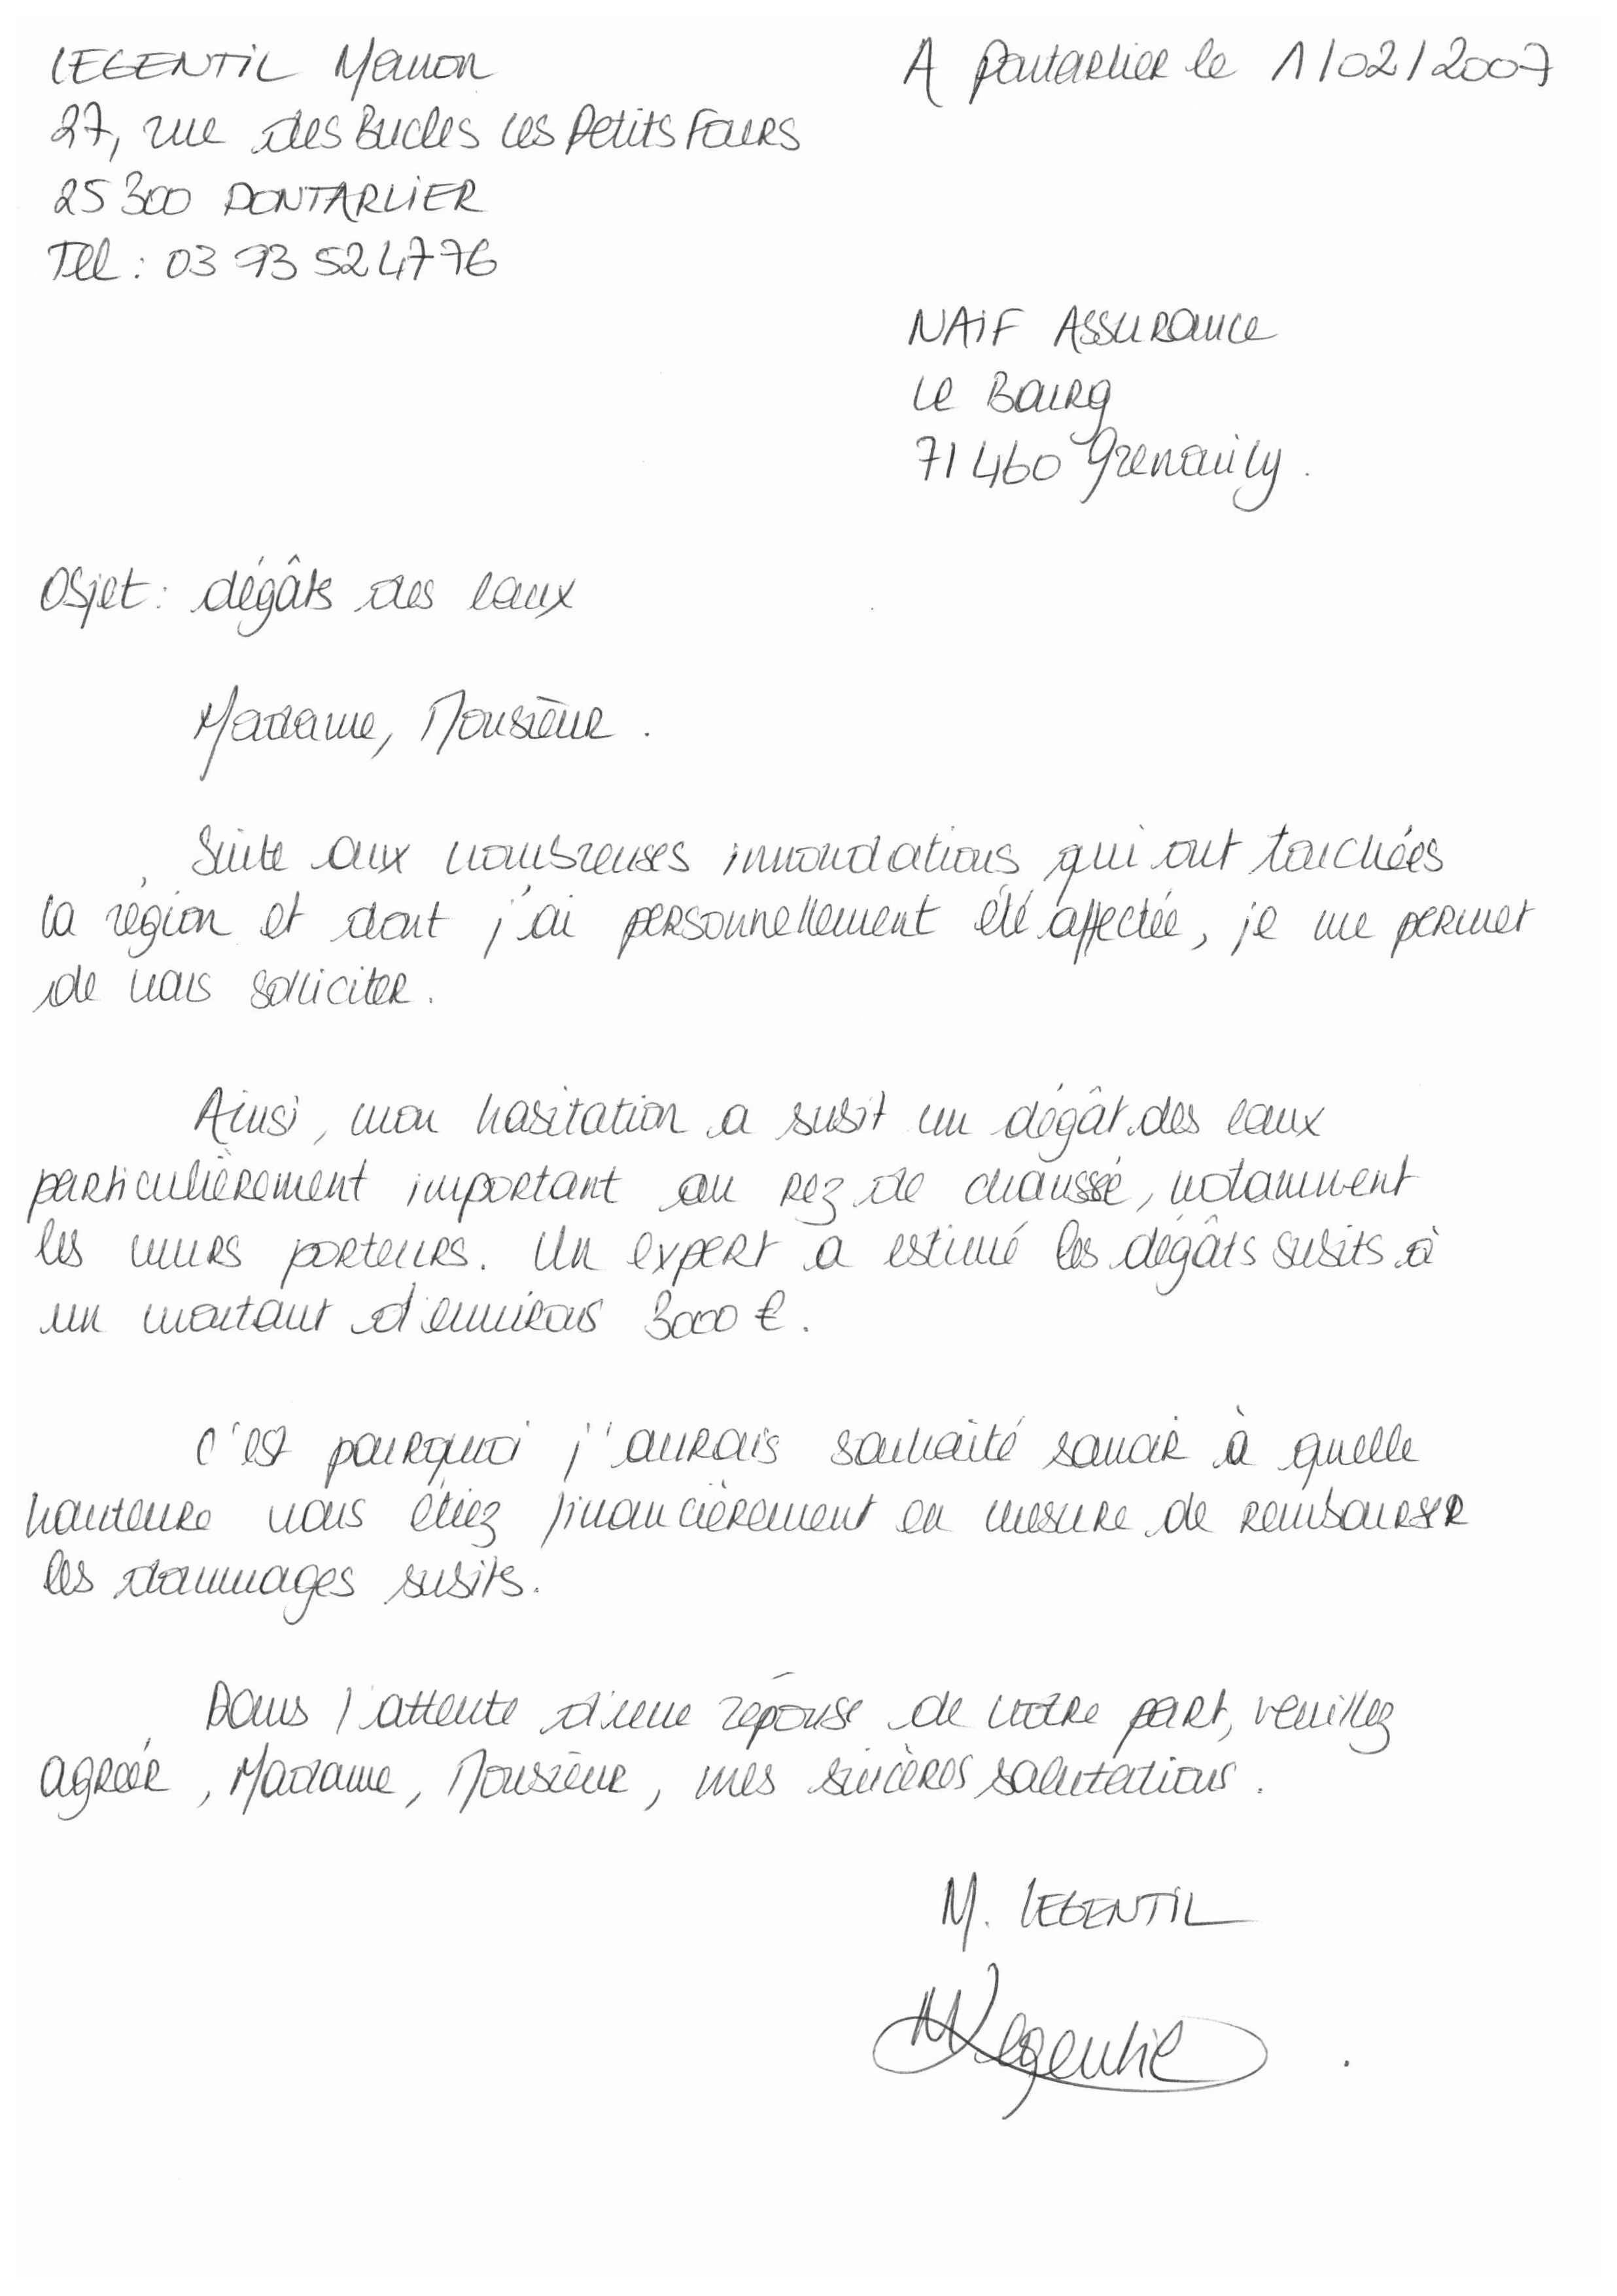 LEGENTIL Manon
A pontarlier le 1/02/2007
27, rue des Bucles les Petits Fours
25300 PONTARLIER
Tel : 03 93 52 47 76
NAIF Assurance
Le Bourg
71460 Grenailly.
Objet : dégâts des eaux
Madame, Monsieur.
Suite aux nombreuses innondations qui ont touchées
la région et dont j'ai personnellement été affectée, je me permet
de vous solliciter.
Ainsi, mon habitation a subit un dégât des eaux
particulièrement important au rez de chaussé, notamment
les murs porteurs. Un expert a estimé les dégâts subits à
un montant d'environs 3000 €.
C'est pourquoi j'aurais souhaité savoir à quelle
hauteure vous étiez financièrement en mesure de rembourser
les dommages subits.
Dans l'attente d'une réponse de votre part, veuillez
agréer, Madame, Monsieur, mes sincères salutations.
M. LEGENTIL
MLegentil